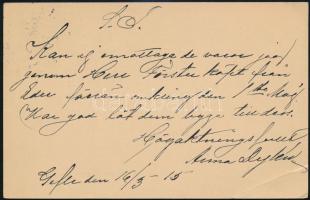 S. T.
Kan ej emottaga de varor jag
genom Herr Förster köpt från
Eder förrän omkring den 1sta Maj
Var god låt dem ligga till dess.
Högaktningsfullt
Anna
Gefle den 16/3 - 15